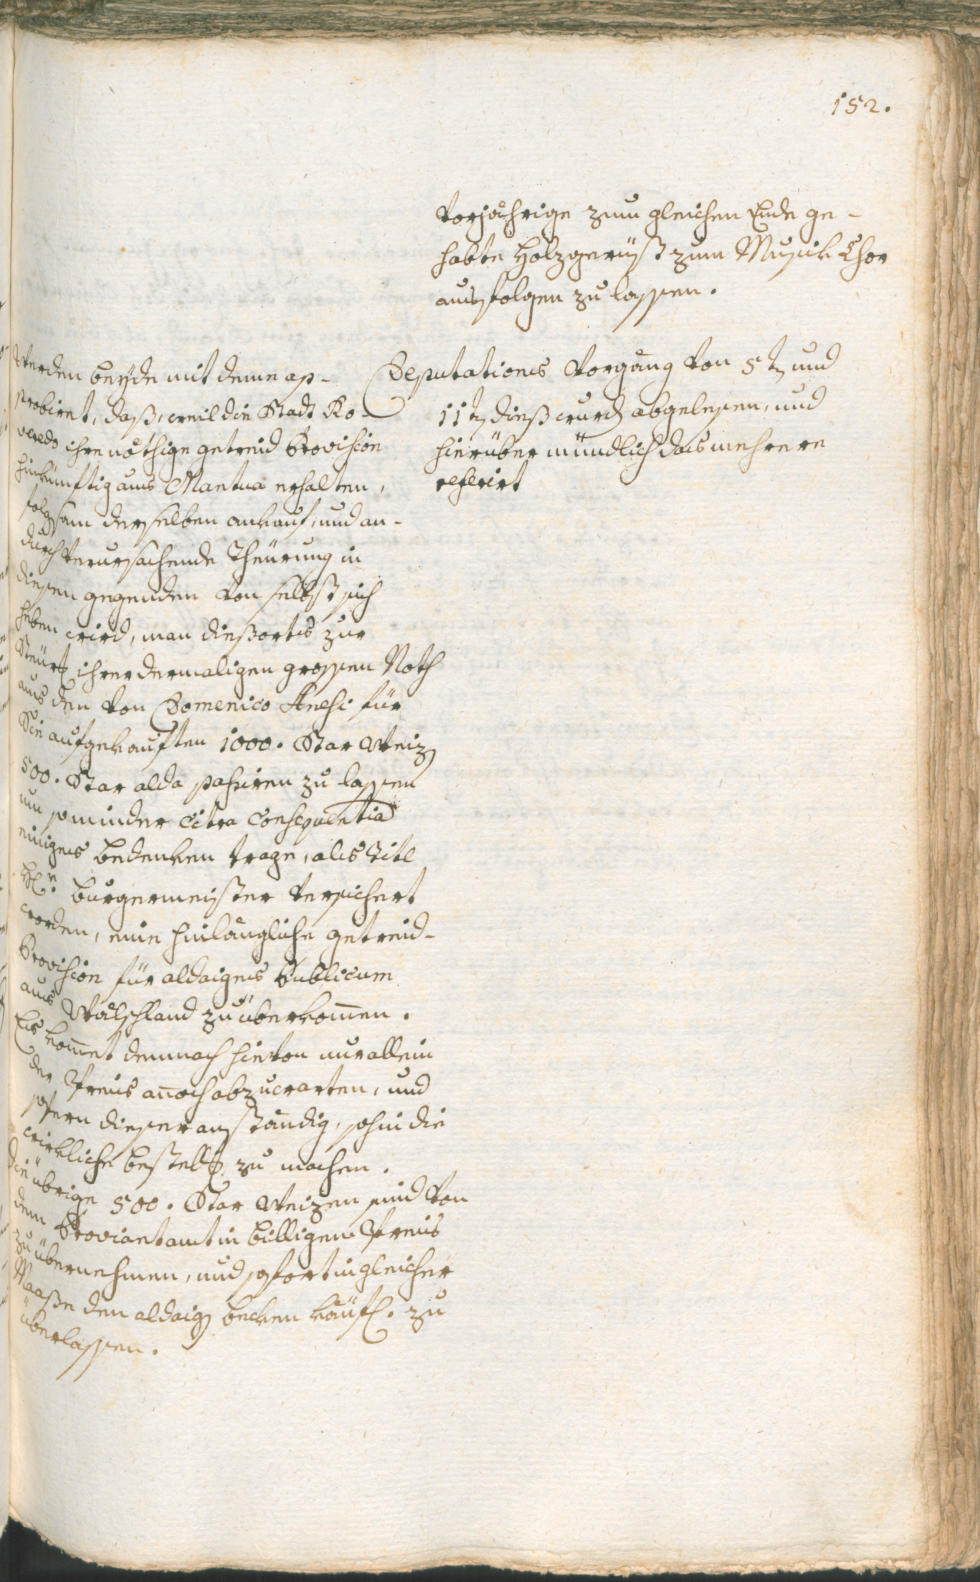 152.
vorjährige zum gleichen Ende ge-
habte Holzgerüst zum Musik Chor
ausfolgen zu lassen.
Deputations Vorgang von 5t, und
11t, dieß wurd, abgelesen, und
hierüber mündlich das mehrere
referirt
Werden beÿde mit deme ap-
probiret, daß, weil die Stadt Ro-
veredo ihre nöthige getreid Provision
hinkünftig aus Mantua erhalten,
folgsam derselben ankauf, und an-
durch verursachende Theürung in
diesen gegenden von selbst sich
heben wird, man dießorts zur
Steür, ihrer dermaligen grossen Noth
aus den von Domenico Anesi für
Sie aufgekauften 1000. Star Weiz,
500. Star alda passiren zu lassen
um so minder citra Consequentia
einiges bedenken trage, als Titl
H: Burgermeister versichert
worden, eine hinlängliche getreid-
Provision für aldaiges Publicum
aus Wälschland zu überkom̄en.
Es kom̄et demnach hievon nur allein
der Preis an̄och abzuwarten, und
sofern dieser anständig, sohin die
wirkliche bestell, zu machen.
die übrige 500. Star Weizen sind von
dem Proviantamt in billigem Preis
zu übernehmen, und sofort in gleicher
Maaße den aldaig, becken käufl. zu
überlassen.